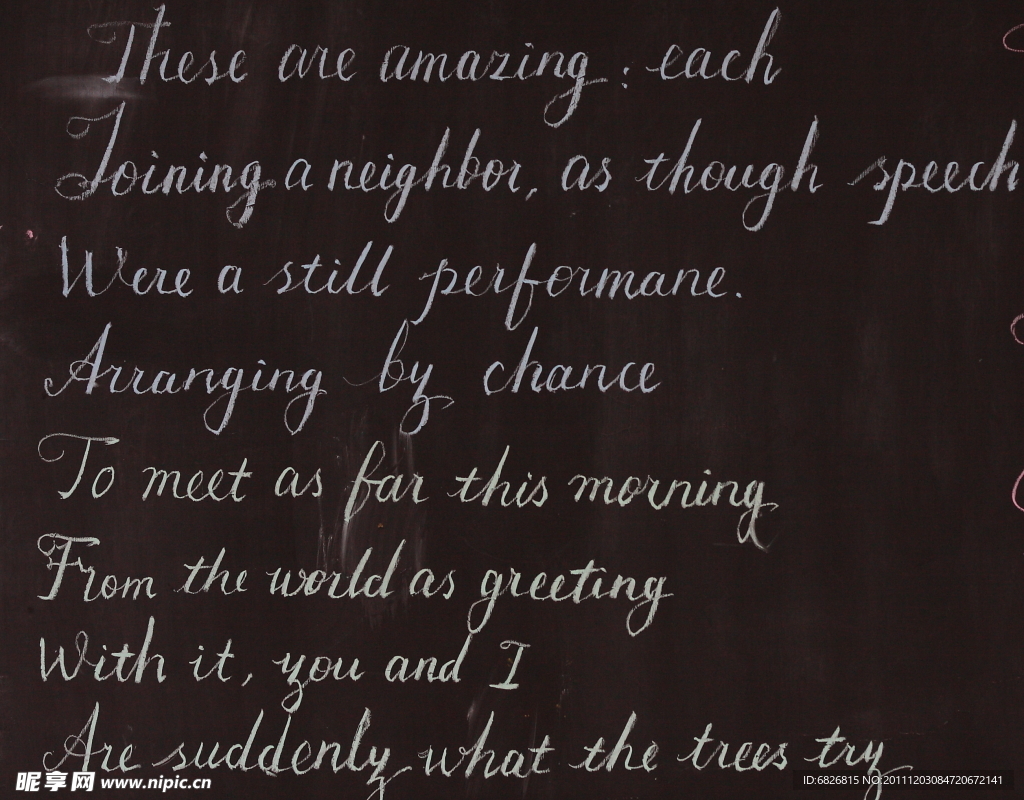 These are amazing: each
Joining a neighbor, as though speech
Were a still performane.
Arranging by chance
To meet as far this morning
From the world as greeting
With it, you and I
Are suddenly what the trees try
昵享网 www.nipic.cn
ID:6826815 NO:20111203084720672141